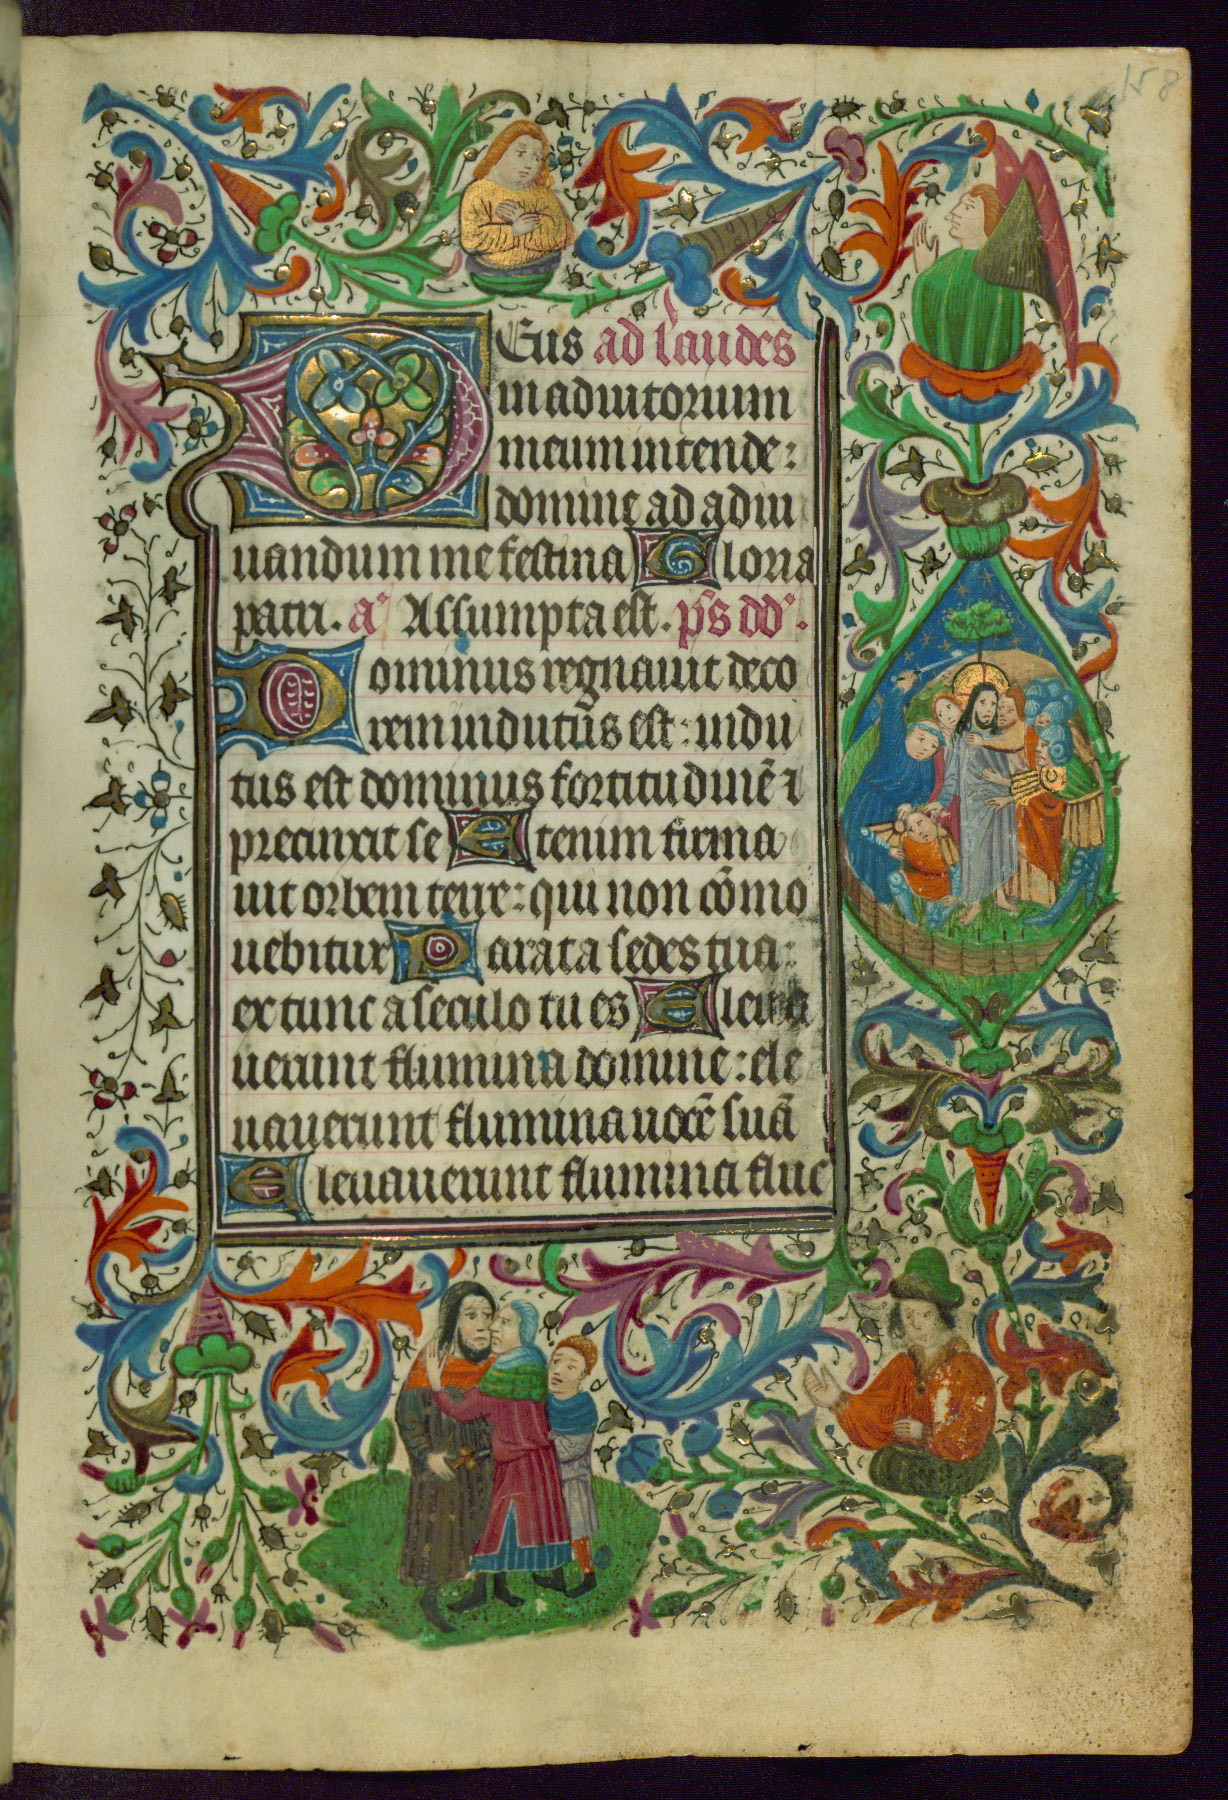 158
Deus ad laudes
in adiutorium
meum intende:
domine ad adiu
uandum me festina Gloria
patri. aͣ Assumpta est. p̄s dd̉.
Dominus regnauit deco
rem indutus est: indu
tus est dominus fortitudinē ⁊
precinxit se Etenim firma
uit orbem terre: qui non cōmo
uebitur Parata sedes tua:
ex tunc a seculo tu es Eleua
uerunt flumina domine: ele
uauerunt flumina uocē suā
Eleuauerunt flumina fluc